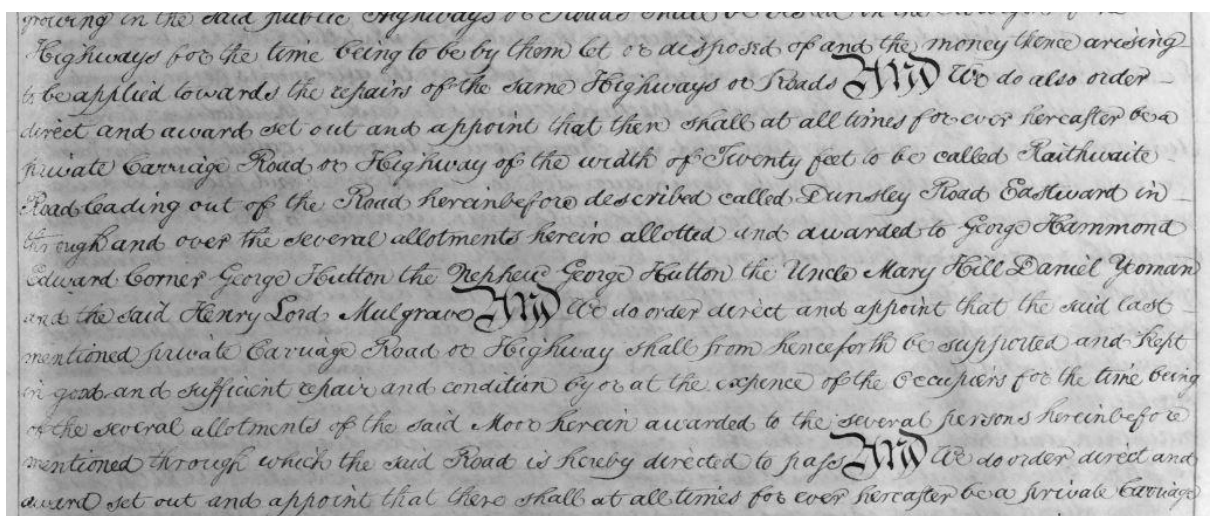 growing in the said public Highways or Roads shall be vested in the Surveyors of the
Highways for the time being to be by them let or disposed of and the money thence arising
to be applied towards the repairs of the same Highways or Roads And We do also order
direct and award set out and appoint that there shall at all times for ever hereafter be a
private Carriage Road or Highway of the width of Twenty feet to be called Raithwaite
Road leading out of the Road hereinbefore described called Dunsley Road Eastward in
through and over the several allotments herein allotted and awarded to George Hammond
Edward Corner George Hutton the Nephew George Hutton the Uncle Mary Hill Daniel Yeoman
and the said Henry Lord Mulgrave And We do order direct and appoint that the said last
mentioned private Carriage Road or Highway shall from henceforth be supported and kept
in good and sufficient repair and condition by or at the expence of the Occupiers for the time being
of the several allotments of the said Moor herein awarded to the several persons hereinbefore
mentioned through which the said Road is hereby directed to pass And We do order direct and
award set out and appoint that there shall at all times for ever hereafter be a private Carriage